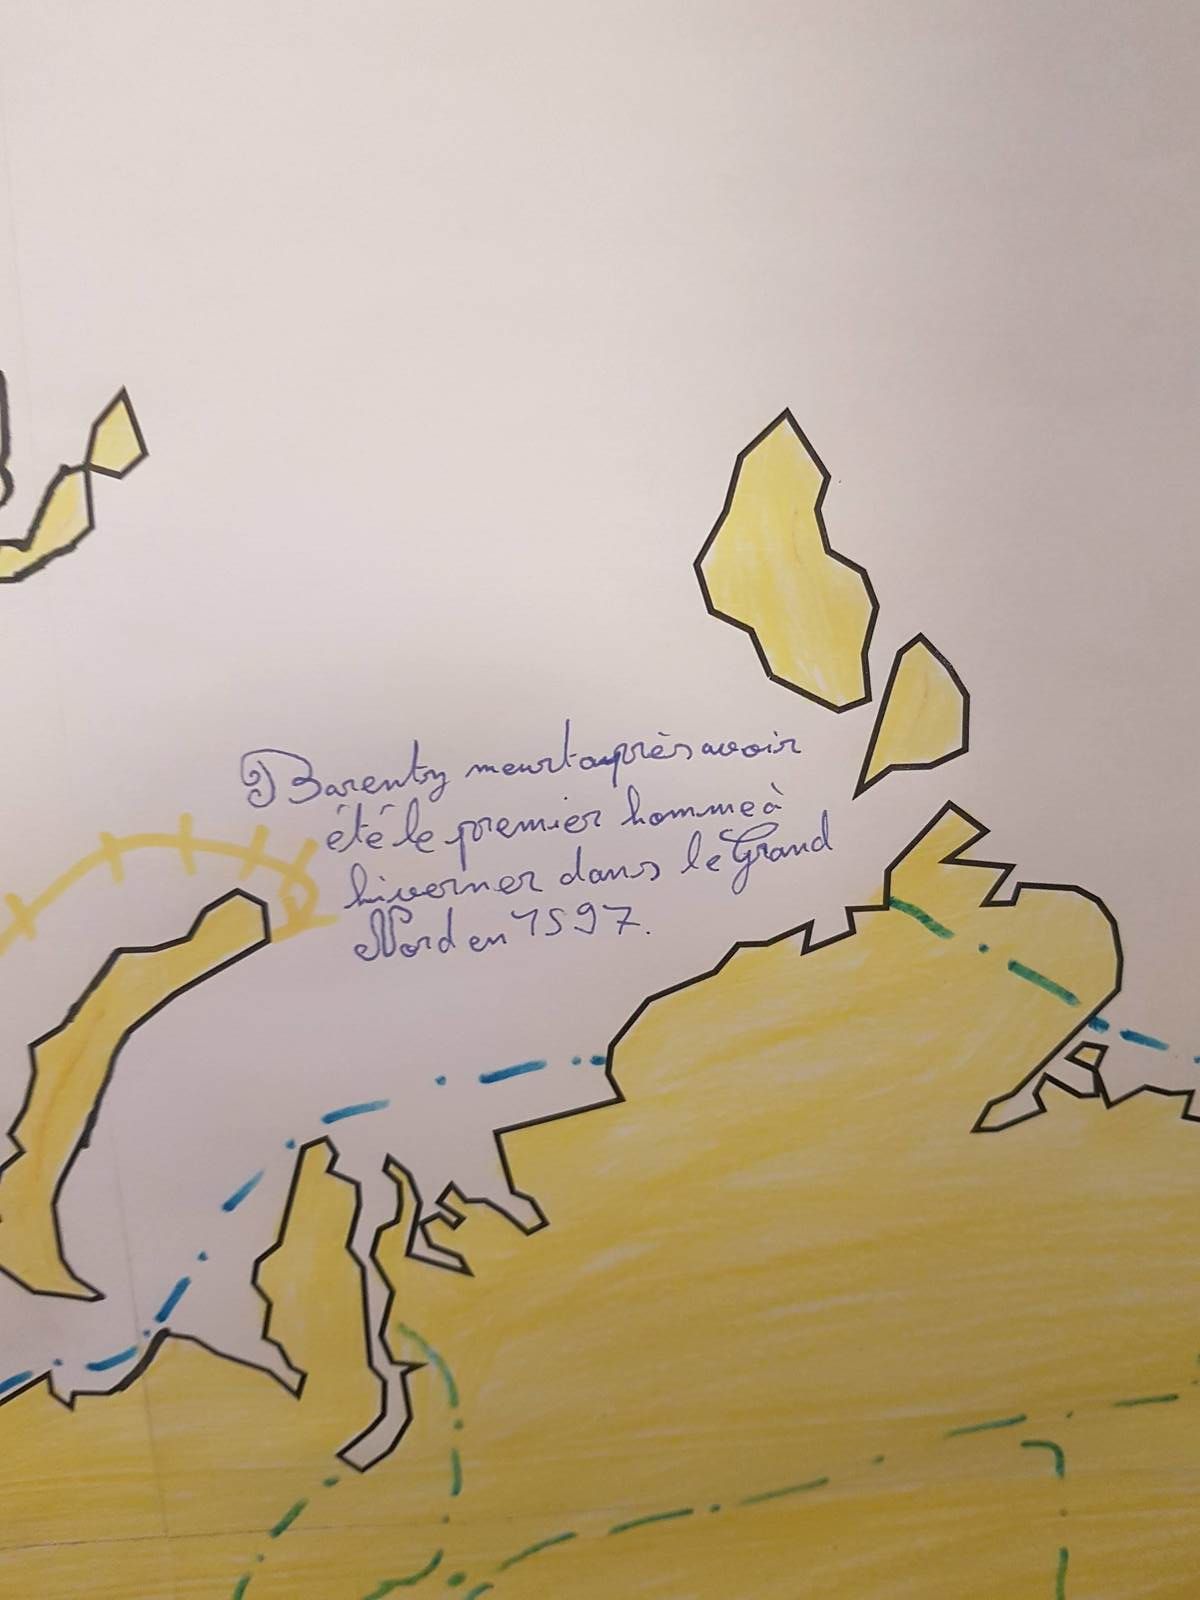 Barentz meurt après avoir
été le premier homme à
hiverner dans le Grand
Nord en 1597.